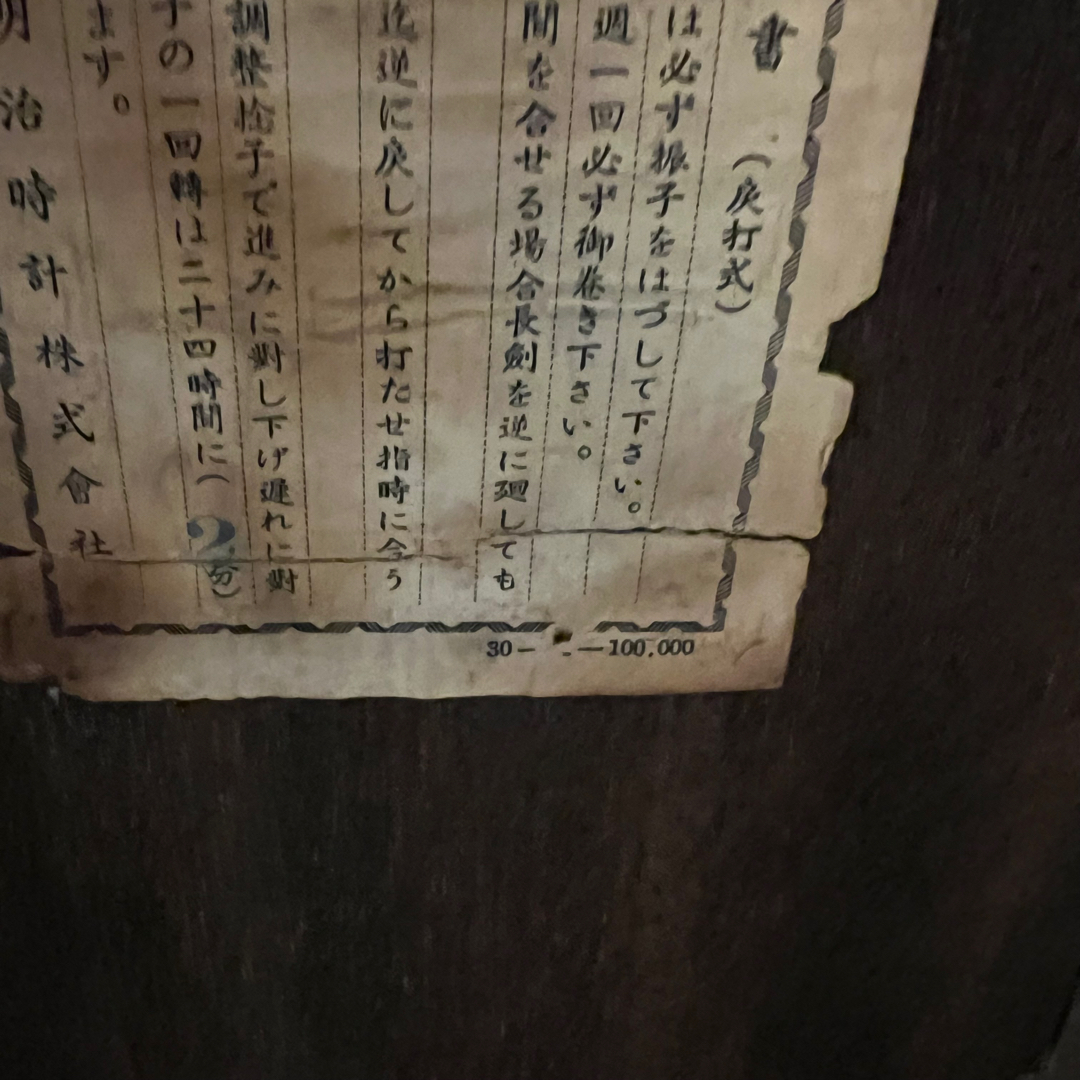 書 (戻打式)
は必ず振子をはづして下さい。
週一回必ず御巻き下さい。
間を合せる場合長劍を逆に廻しても
迄逆に戻してから打たせ指時に合う
調整捻子で進みに對し下げ遅れに對
子の一回轉は二十四時間に(2分)
ます。
明治時計株式會社
30— —100,000